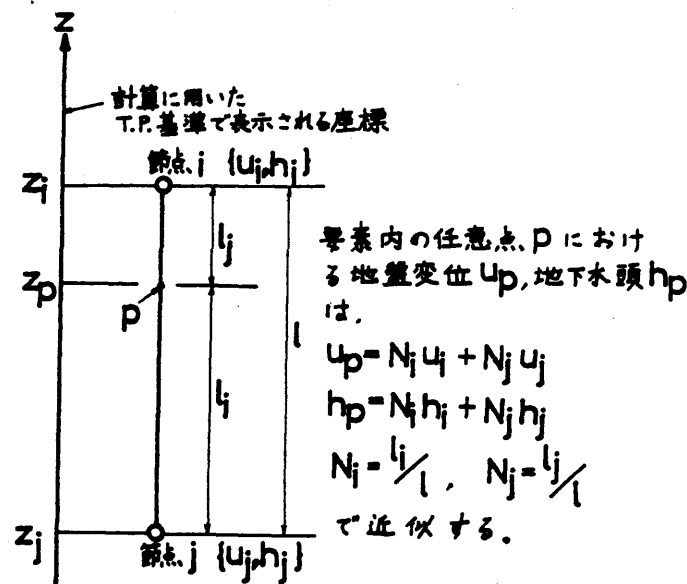 z
計算に用いた
T.P.基準で表示される座標
節点 i {ui, hi}
zi
lj
zp
p
li
l
zj
節点 j {uj, hj}
要素内の任意点 p におけ
る地盤変位 up, 地下水頭 hp
は,
up = Ni ui + Nj uj
hp = Ni hi + Nj hj
Ni = li/l , Nj = lj/l
で近似する。